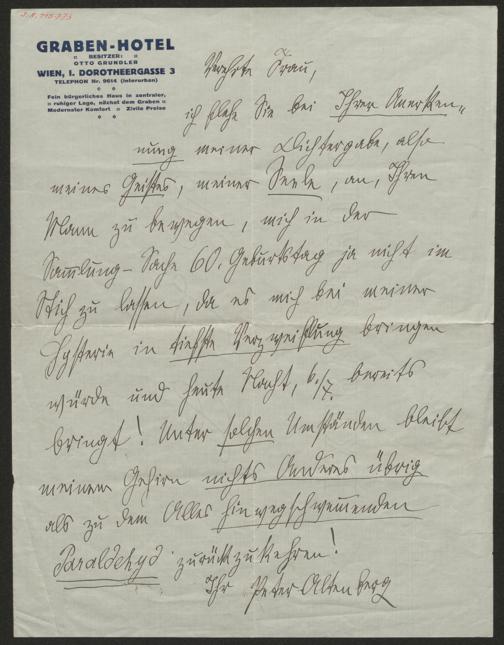 J.N. 115.773
GRABEN-HOTEL
BESITZER:
OTTO GRUNDLER
WIEN, I. DOROTHEERGASSE 3
TELEPHON Nr. 9614 (interurban)
Fein bürgerliches Haus in zentraler,
ruhiger Lage, nächst dem Graben
Modernster Komfort Zivile Preise
Verehrte Frau,
ich flehe Sie bei Ihrer Anerken-
nung meiner Dichtergabe, also
meines Geistes, meiner Seele, an, Ihren
Mann zu bewegen, mich in der
Sammlung-Sache 60. Geburtstag ja nicht im
Stich zu lassen, da es mich bei meiner
Hysterie in tiefste Verzweiflung bringen
würde und heute Nacht, 6./7. bereits
bringt! Unter solchen Umständen bleibt
meinem Gehirn nichts Anderes übrig
als zu dem Alles hinwegschwemmenden
Paraldehyd zurückzukehren!
Ihr Peter Altenberg